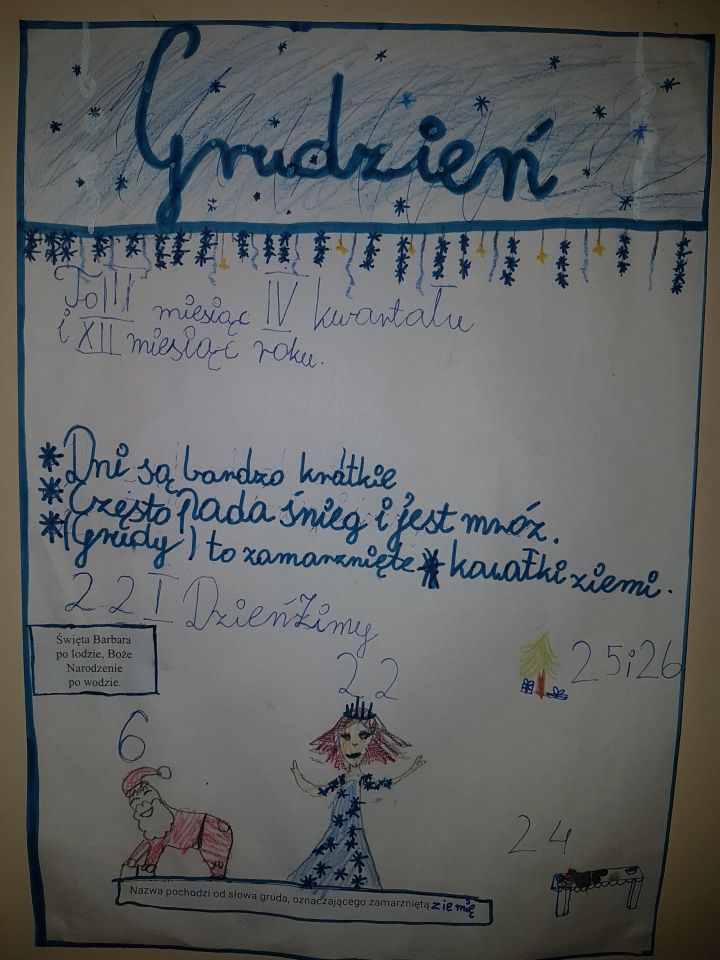 Grudzień
To III miesiąc IV kwartału
i XII miesiąc roku.
* Dni są bardzo krótkie
* Często Pada śnieg i jest mróz.
* (Grudy) to zamarznięte * kawałki ziemi.
22 I Dzień Zimy
Święta Barbara
po lodzie, Boże
Narodzenie
po wodzie.
22
25 i 26
6
24
Nazwa pochodzi od słowa gruda, oznaczającego zamarzniętą ziemię